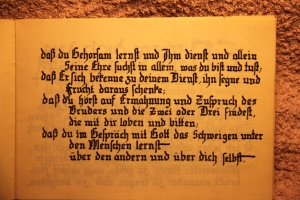 daß du Gehorsam lernst und Ihm dienst und allein
Seine Ehre suchst in allem, was du bist und tust;
daß Er sich bekenne zu deinem Dienst, ihn segne und
Frucht daraus schenke;
daß du hörst auf Ermahnung und Zuspruch des
Bruders und die Zwei oder Drei findest,
die mit dir loben und bitten;
daß du im Gespräch mit Gott das Schweigen unter
den Menschen lernst
über den andern und über dich selbst